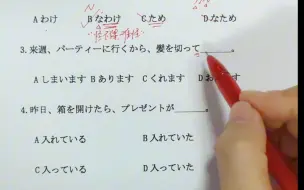 A わけ B なわけ C ため D.なため
3.来週、パーティーに行くから、髪を切って＿＿＿。
A しまいます B あります C くれます D お
4.昨日、箱を開けたら、プレゼントが＿＿＿。
A 入れている B 入れていた
C 入っている D 入っていた